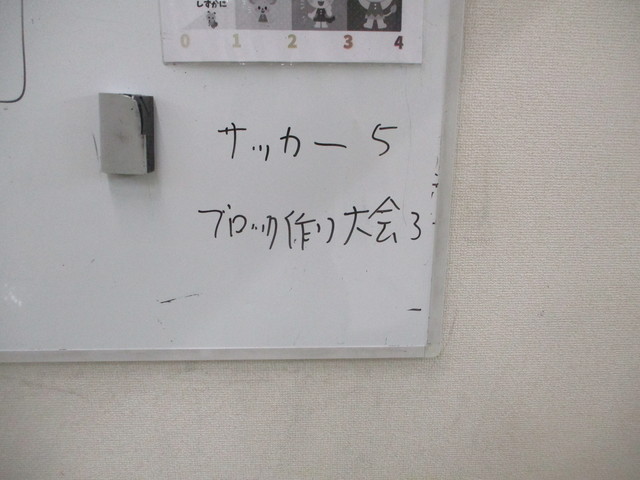 しずかに
0 1 2 3 4
サッカー 5
ブロック作り大会3